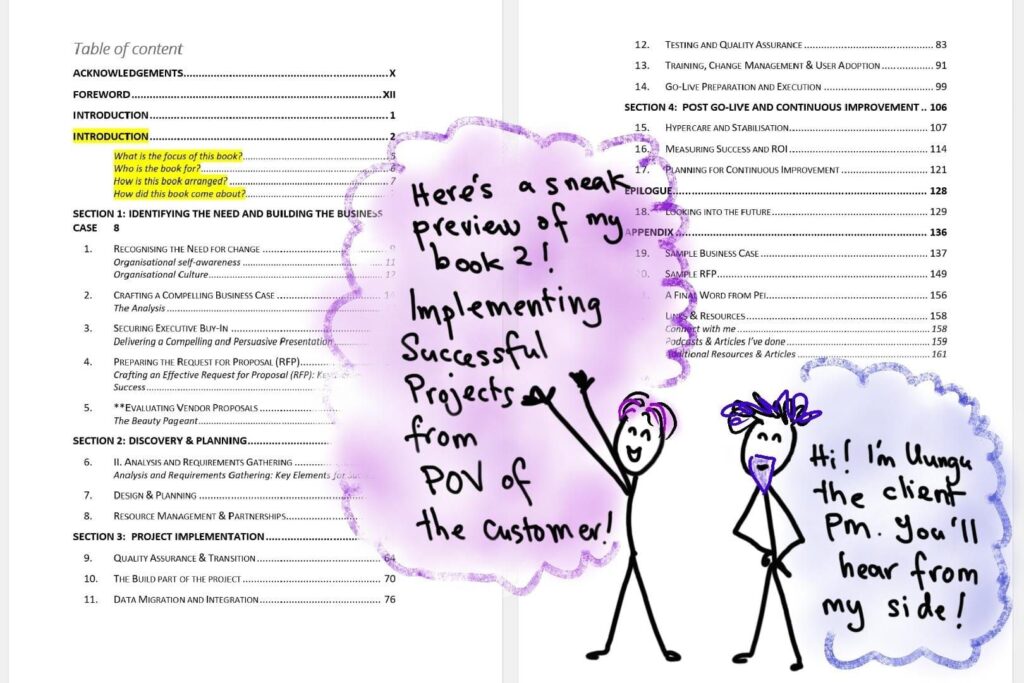 Table of content
ACKNOWLEDGEMENTS............X
FOREWORD............XII
INTRODUCTION............1
INTRODUCTION............2
What is the focus of this book?............5
Who is the book for?............6
How is this book arranged?............7
How did this book come about?............
SECTION 1: IDENTIFYING THE NEED AND BUILDING THE BUSINESS
CASE 8
1. RECOGNISING THE NEED FOR CHANGE............9
Organisational self-awareness............11
Organisational Culture............12
2. CRAFTING A COMPELLING BUSINESS CASE............
The Analysis............
3. SECURING EXECUTIVE BUY-IN............
Delivering a Compelling and Persuasive Presentation
4. PREPARING THE REQUEST FOR PROPOSAL (RFP)............
Crafting an Effective Request for Proposal (RFP):
Success............
5. **EVALUATING VENDOR PROPOSALS............
The Beauty Pageant............
SECTION 2: DISCOVERY & PLANNING............
6. II. ANALYSIS AND REQUIREMENTS GATHERING............
Analysis and Requirements Gathering: Key Elements for
7. DESIGN & PLANNING............
8. RESOURCE MANAGEMENT & PARTNERSHIPS............
SECTION 3: PROJECT IMPLEMENTATION............
9. QUALITY ASSURANCE & TRANSITION............64
10. THE BUILD PART OF THE PROJECT............70
11. DATA MIGRATION AND INTEGRATION............76
12. TESTING AND QUALITY ASSURANCE............83
13. TRAINING, CHANGE MANAGEMENT & USER ADOPTION............91
14. GO-LIVE PREPARATION AND EXECUTION............99
SECTION 4: POST GO-LIVE AND CONTINUOUS IMPROVEMENT .. 106
15. HYPERCARE AND STABILISATION............107
16. MEASURING SUCCESS AND ROI............114
17. PLANNING FOR CONTINUOUS IMPROVEMENT............121
EPILOGUE............128
18. LOOKING INTO THE FUTURE............129
APPENDIX............136
19. SAMPLE BUSINESS CASE............137
SAMPLE RFP............149
A FINAL WORD FROM PEI............156
LINKS & RESOURCES............158
Connect with me............158
Podcasts & Articles I've done............159
Additional Resources & Articles............161
Here's a sneak
preview of my
book 2!
Implementing
Successful
Projects
from
POV of
the customer!
Hi! I'm Uungu
the client
PM. You'll
hear from
my side!